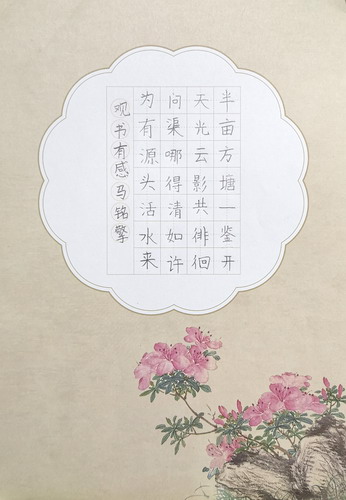 半亩方塘一鉴开
天光云影共徘徊
问渠哪得清如许
为有源头活水来
观书有感马铭擎